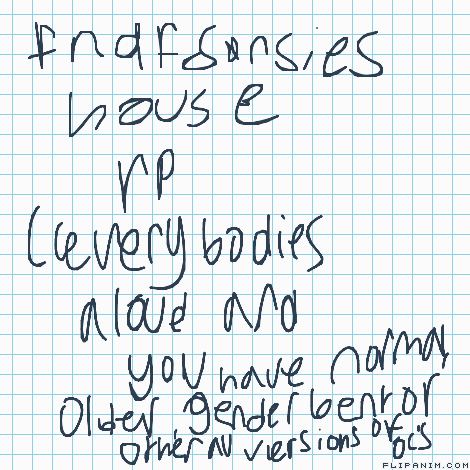 fndfsansies
house
rp
(everybodies
aloud and
you have normal,
older, genderbent or
other au versions of ocs
FLIPANIM.COM